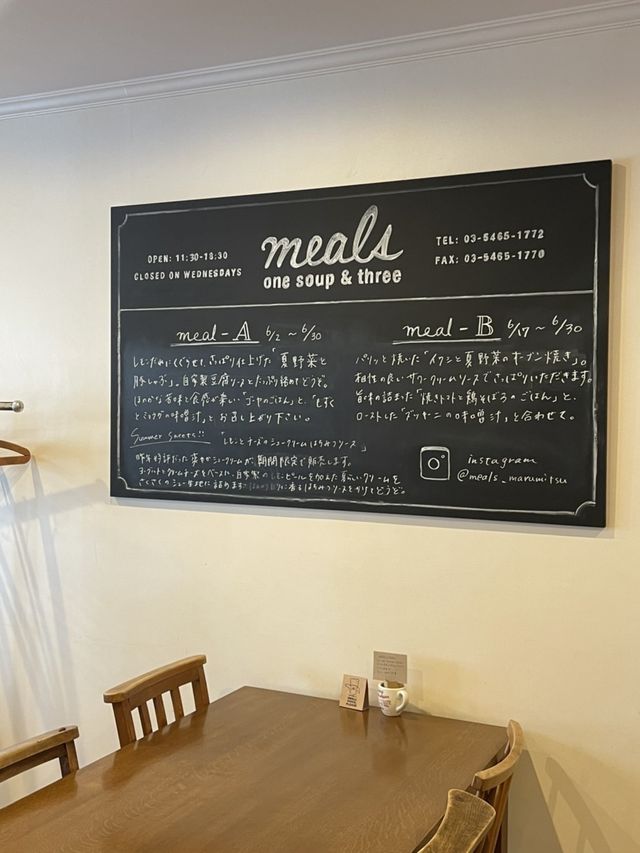 OPEN: 11:30-18:30
CLOSED ON WEDNESDAYS
meals
one soup & three
TEL: 03-5465-1772
FAX: 03-5465-1770
meal-A 6/2 ~ 6/30
レモンだれにくぐらせて、さっぱり仕上げた「夏野菜と
豚しゃぶ」。自家製豆腐ソースとたっぷり絡めてどうぞ。
ほのかな苦味と食感が楽しい「ゴーヤのごはん」と、「もずく
とミョウガの味噌汁」とお召し上がり下さい。
Summer Sweets!! 「レモンとチーズのシュークリーム はちみつソース」
昨年好評だった爽やかシュークリームが、期間限定で販売します。
ヨーグルトとクリームチーズをベースに、自家製のレモンピールを加えた夏らしいクリームを
さくさくのシュー生地に詰めます。に香るはちみつソースをかけてどうぞ。
meal-B 6/17 ~ 6/30
パリッと焼いた「イワシと夏野菜のオーブン焼き」。
相性の良いサワークリームソースでさっぱりいただきます。
旨味の詰まった「焼きトマトと鶏そぼろのごはん」と、
ローストした「ズッキーニの味噌汁」と合わせて。
instagram
@meals_marumitsu